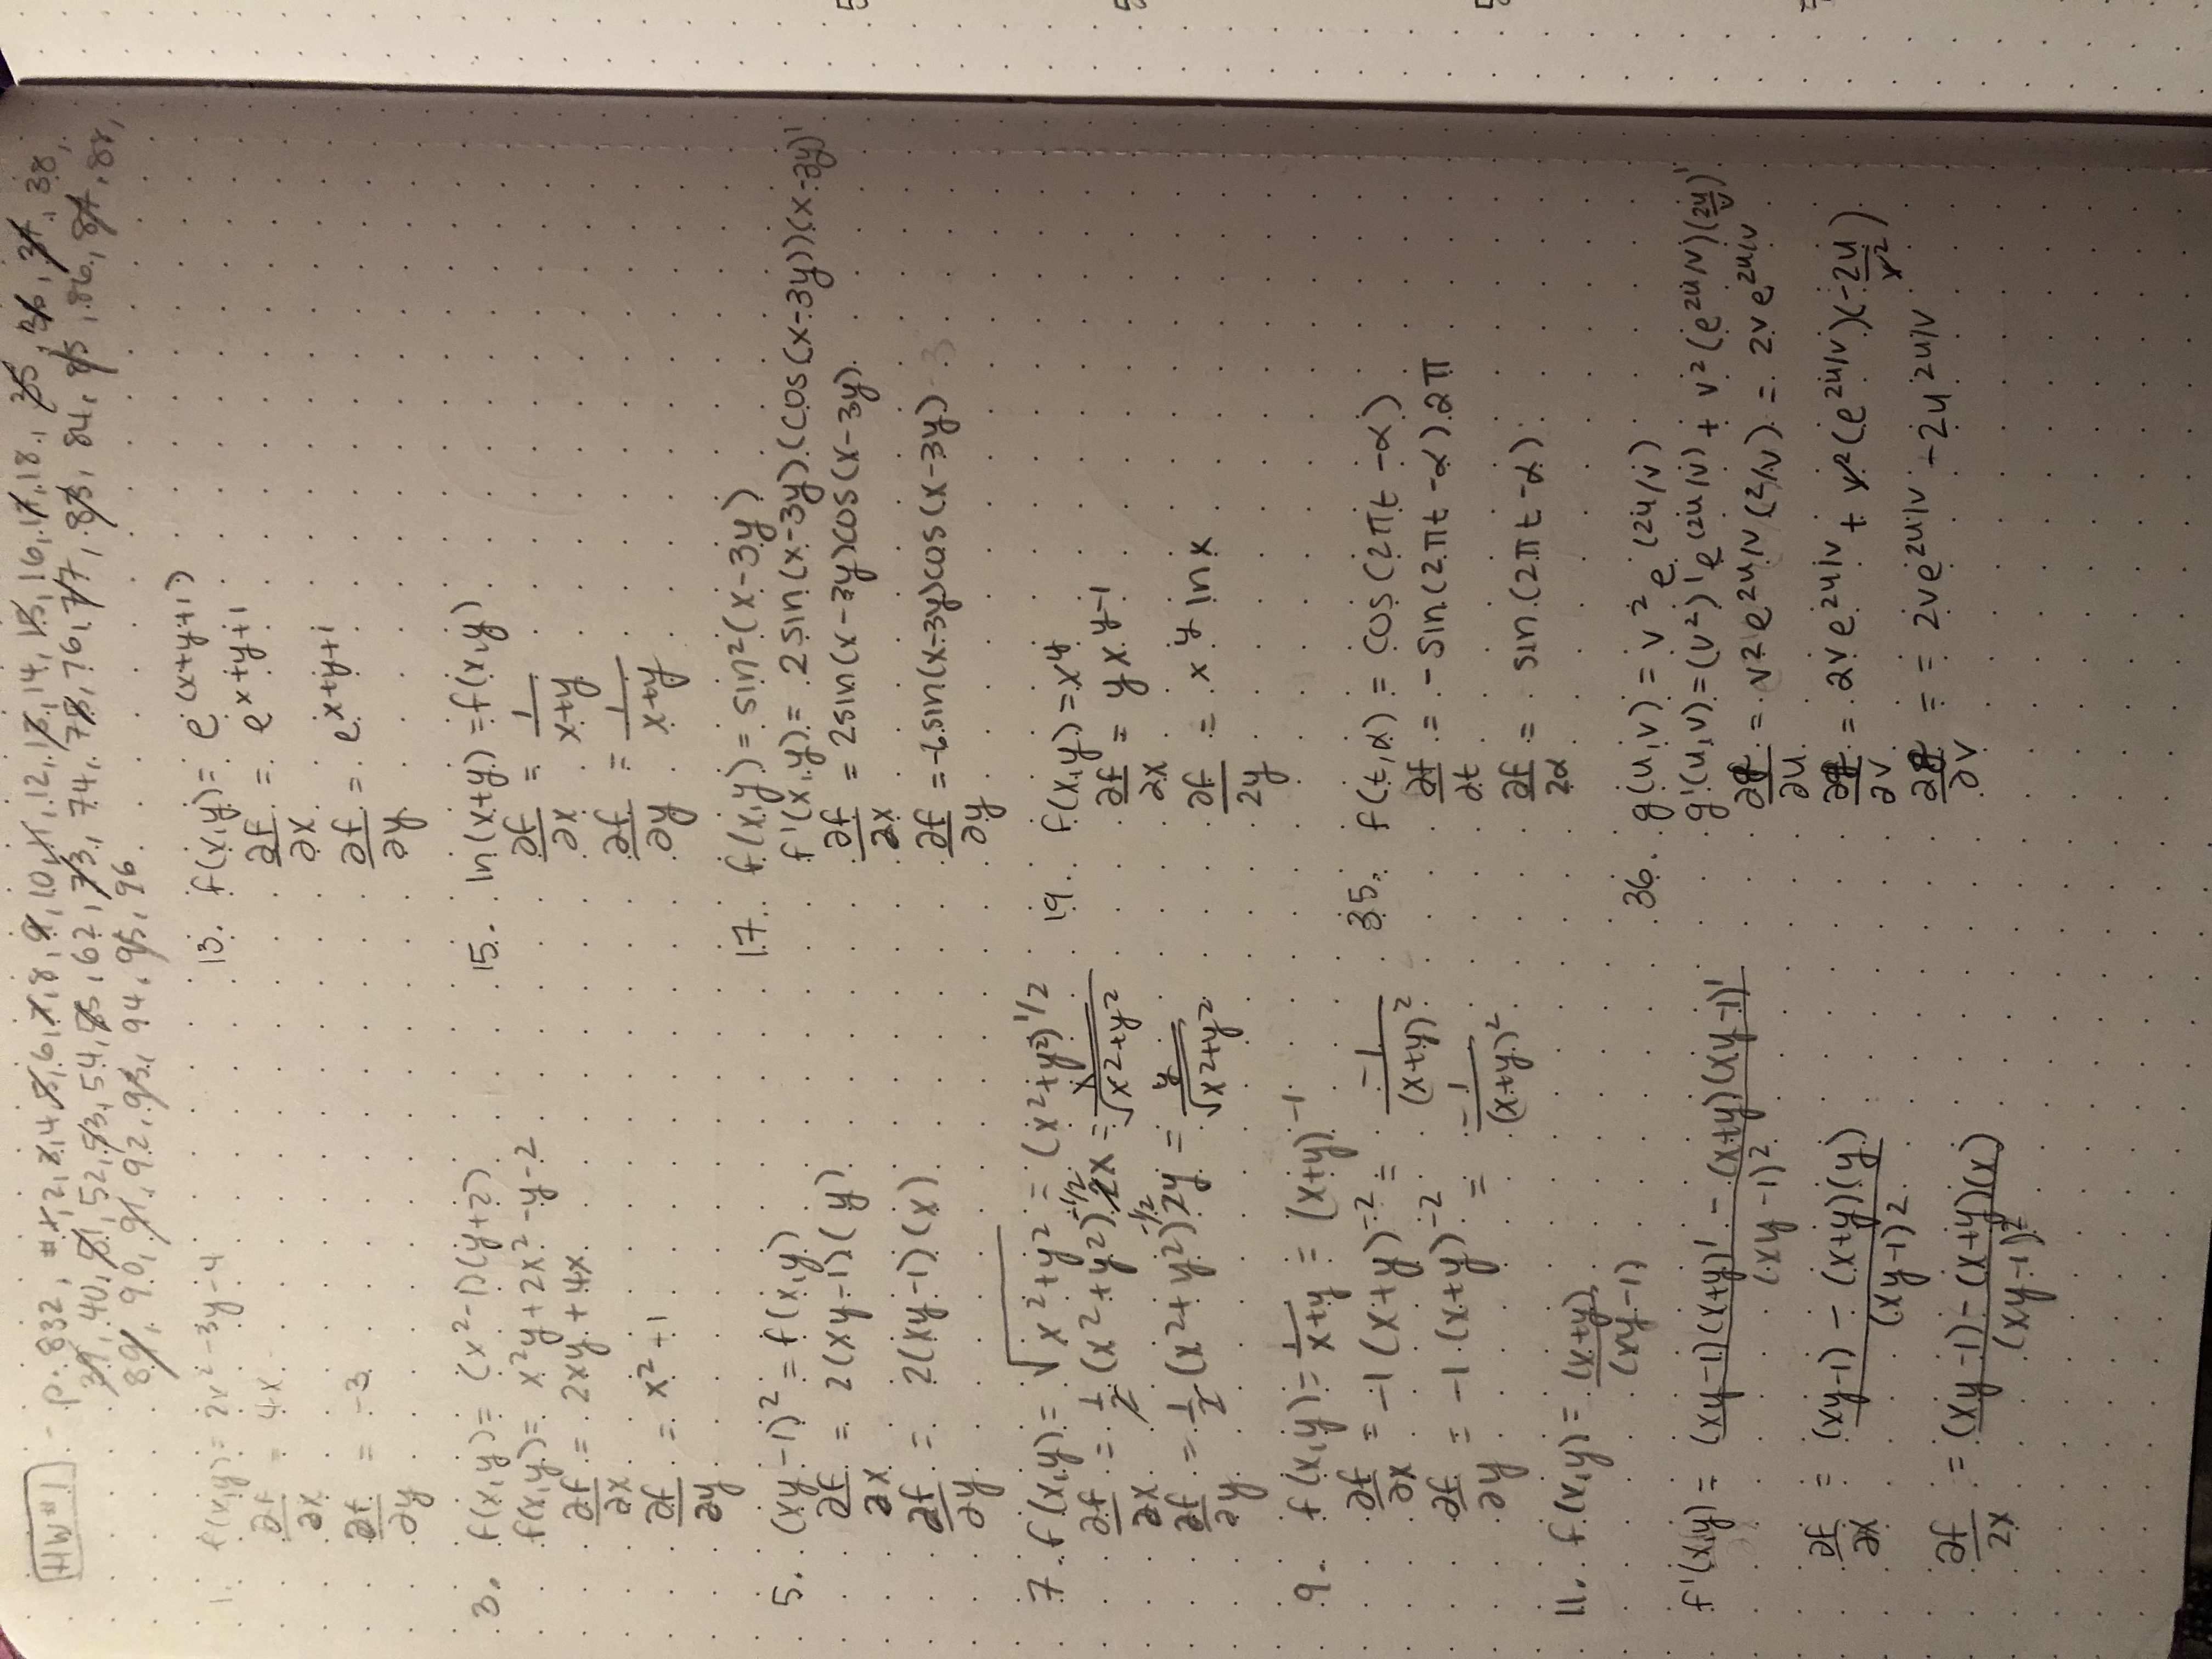 HW #1 - p. 832, #1, 2, 3, 4, 5, 6, 7, 8, 9, 10, 11, 12, 13, 14, 15, 16, 17, 18, 35, 36, 37, 38,
39, 40, 51, 52, 53, 54, 55, 62, 73, 74, 75, 76, 77, 83, 84, 85, 86, 87, 88,
89, 90, 91, 92, 93, 94, 95, 96
1. f(x,y) = 2x² - 3y - 4
∂f/∂x = 4x
∂f/∂y = -3
3. f(x,y) = (x² - 1)(y+2)
f(x,y) = x²y + 2x² - y - 2
∂f/∂x = 2xy + 4x
∂f/∂y = x² - 1
5. (xy - 1)² = f(x,y)
∂f/∂x = 2(xy-1)(y)
∂f/∂y = 2(xy-1)(x)
7. f(x,y) = √(x²+y²) = (x²+y²)^1/2
∂f/∂x = 1/2 (x²+y²)^-1/2 2x = x/√(x²+y²)
∂f/∂y = 1/2 (x²+y²)^-1/2 2y = y/√(x²+y²)
9. f(x,y) = 1/(x+y) = (x+y)^-1
∂f/∂x = -1(x+y)^-2 = -1/(x+y)²
∂f/∂y = -1(x+y)^-2 = -1/(x+y)²
11. f(x,y) = (x+y)/(xy-1)
f'(x,y) = ((xy-1)(x+y)' - (x+y)(xy-1)')/(xy-1)²
∂f/∂x = ((xy-1) - (x+y)(y))/(xy-1)²
∂f/∂x = ((xy-1) - (x+y)(x))/(xy-1)²
13. f(x,y) = e^(x+y+1)
∂f/∂x = e^x+y+1
∂f/∂y = e^x+y+1
15. ln(x+y) = f(x,y)
∂f/∂x = 1/(x+y)
∂f/∂y = 1/(x+y)
17. f(x,y) = sin²(x-3y)
f'(x,y) = 2sin(x-3y)(cos(x-3y))(x-3y)'
∂f/∂x = 2sin(x-3y)cos(x-3y)
∂f/∂y = -6sin(x-3y)cos(x-3y)
19. f(x,y) = x^y
∂f/∂x = yx^y-1
∂f/∂y = x^y ln x
35. f(t,α) = cos(2πt - α)
∂f/∂t = -sin(2πt - α) 2π
∂f/∂α = sin(2πt - α)
36. g(u,v) = v² e^(2u/v)
g'(u,v) = (v²)' e^(2u/v) + v²(e^2u/v)(2u/v)'
∂g/∂u = v² e^2u/v (2/v) = 2v e^2u/v
∂g/∂v = 2v e^2u/v + v²(e^2u/v)(-2u/v²)
∂g/∂v = = 2v e^2u/v - 2u^2u/v